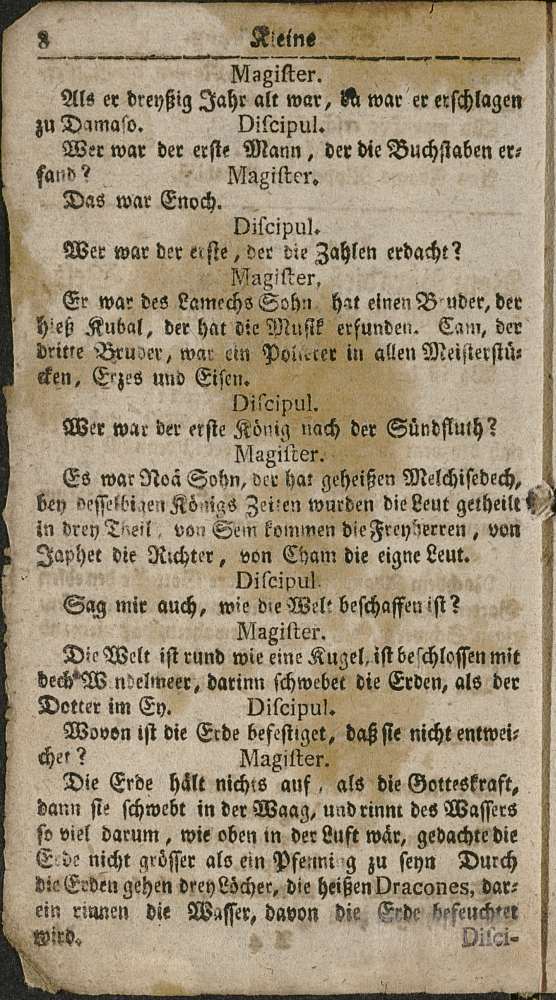 8 Kleine
Magister.
Als er dreyßig Jahr alt war, da war er erschlagen
zu Damaso. Discipul.
Wer war der erste Mann, der die Buchstaben er-
fand? Magister.
Das war Enoch.
Discipul.
Wer war der erste, der die Zahlen erdacht?
Magister,
Er war des Lamechs Sohn hat einen Bruder, der
hieß Kubal, der hat die Musik erfunden. Cam, der
dritte Bruder, war ein in allen Meisterstü-
cken, Erzes und Eisen.
Discipul.
Wer war der erste König nach der Sündfluth?
Magister.
Es war Noä Sohn, der hat geheißen Melchisedech,
bey desselbigen Königs Zeiten wurden die Leut getheilt
in drey Theil, von Sem kommen die Freyherren, von
Japhet die Richter, von Cham die eigne Leut.
Discipul.
Sag mir auch, wie die Welt beschaffen ist?
Magister.
Die Welt ist rund wie eine Kugel, ist beschlossen mit
dech Wendelmeer, darinn schwebet die Erden, als der
Dotter im Ey. Discipul.
Wovon ist die Erde befestiget, daß sie nicht entwei-
chet? Magister.
Die Erde hält nichts auf, als die Gotteskraft,
dann sie schwebt in der Waag, und rinnt des Wassers
so viel darum, wie oben in der Luft wär, gedachte die
Erde nicht grösser als ein Pfenning zu seyn Durch
die Erden gehen drey Löcher, die heißen Dracones, dar-
ein rinnen die Wasser, davon die Erde befeuchtet
wird. Disci-